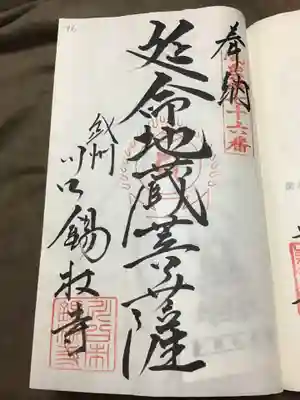 奉納
十六番
延命地蔵菩薩
武州
川口錫杖寺